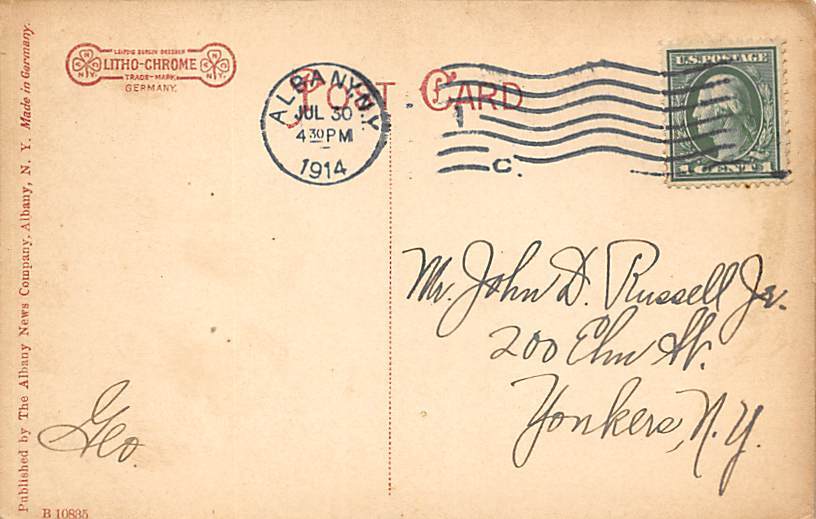 Published by The Albany News Company, Albany, N. Y. Made in Germany.
LEIPZIG BERLIN DRESDEN
LITHO-CHROME
TRADE-MARK
GERMANY.
POST CARD
ALBANY, N.Y.
JUL 30
4 30 PM
1914
C.
U.S. POSTAGE
1 CENT 1
Mr. John D. Russell Jr.
200 Elm St.
Yonkers, N.Y.
Geo.
B 10835